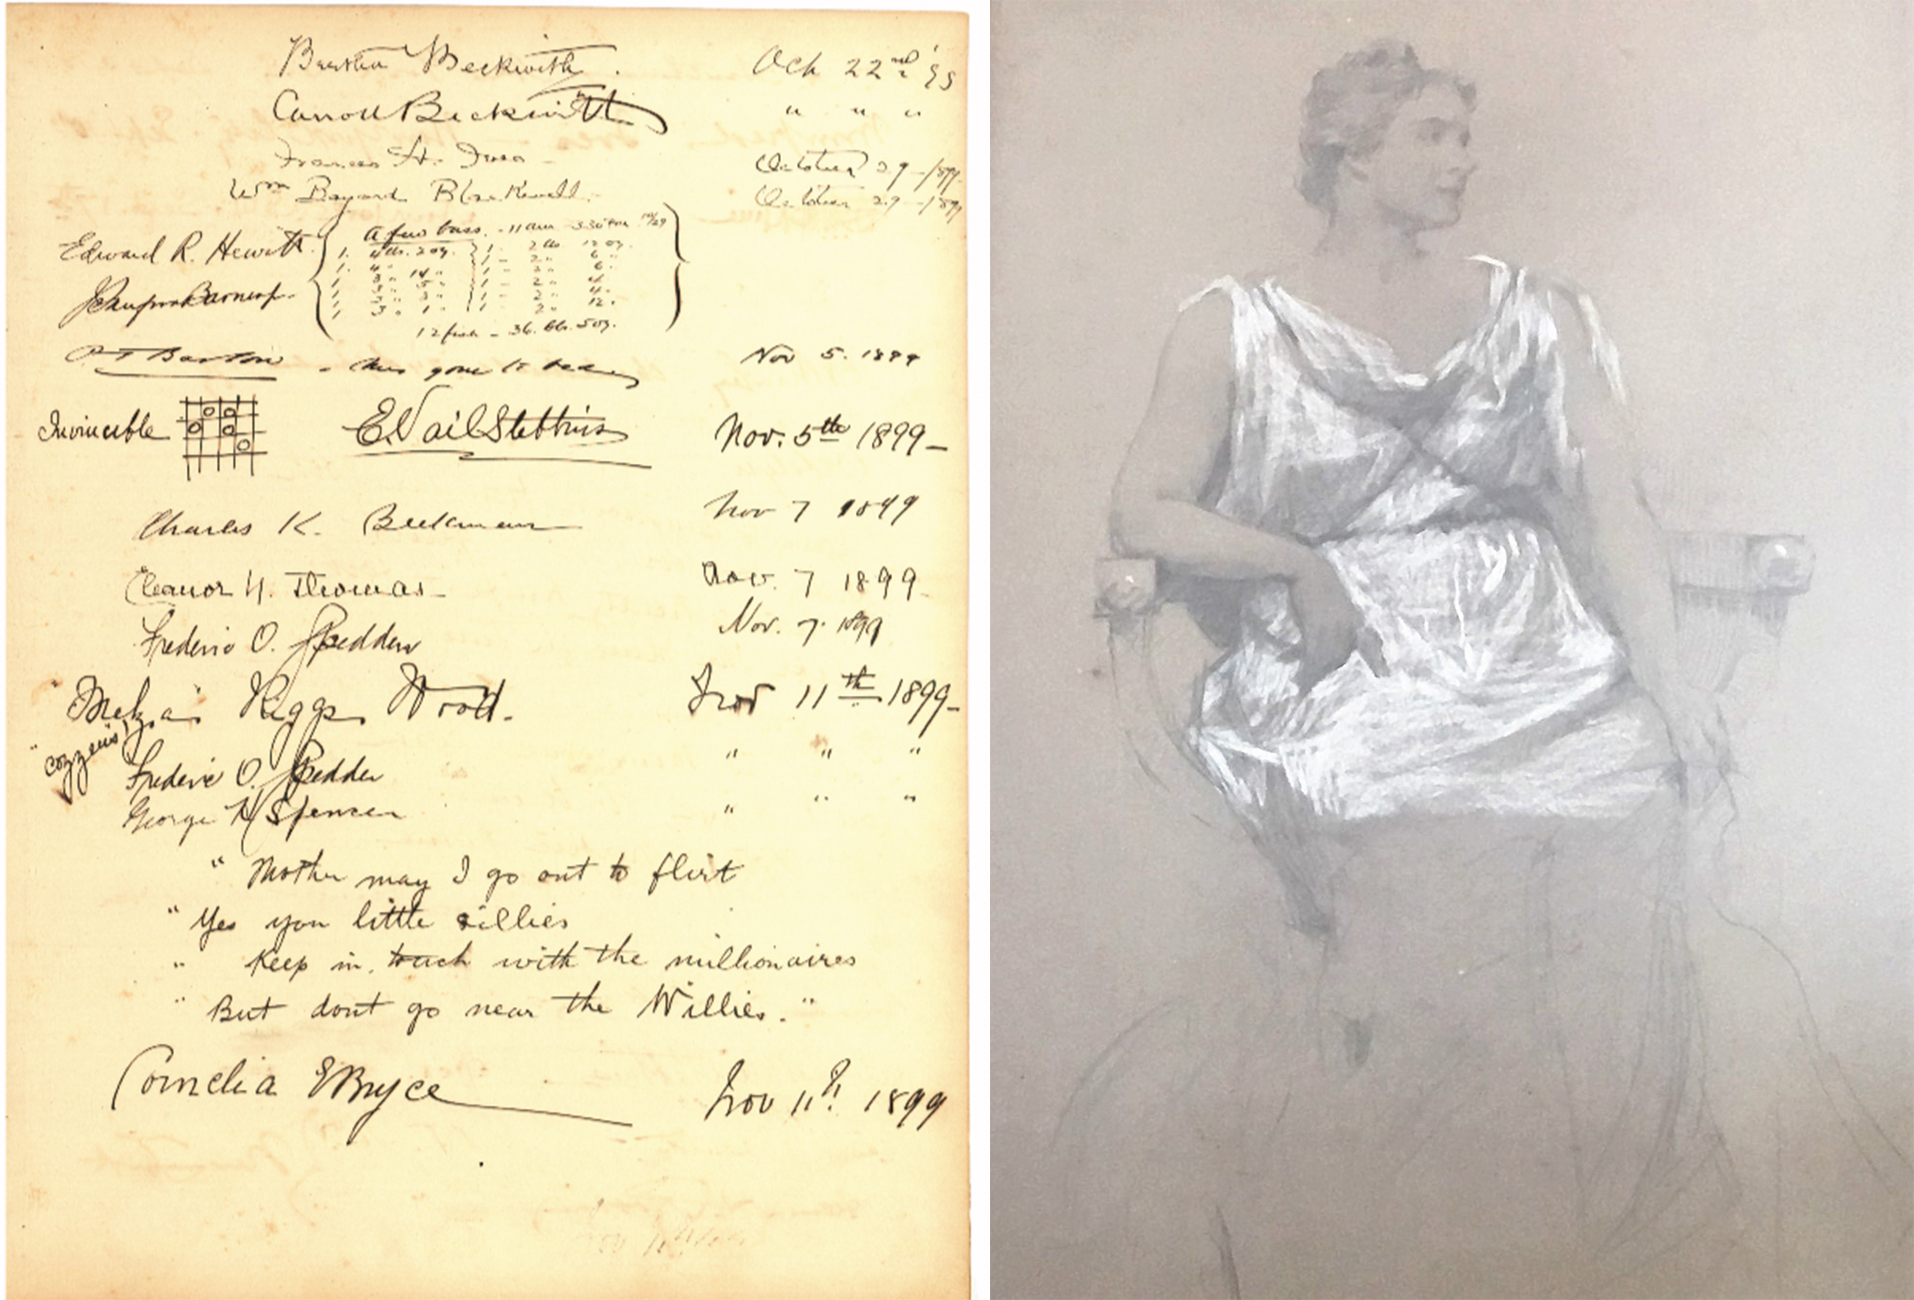 Bertha Beckwith. Oct 22nd '99
Carroll Beckwith " " "
Frances H. October 29 - 1899
Wm Bayard Blackwell. October 29 - 1899
Edward R. Hewitt. A few bass. - 11 am - 3.30 P.M. 10/29
1. 4 lbs. 2 oz. 1 - 2 lb 12 oz.
1. 4 " 1 - 2 " 6 "
1. 3 " 14 " 1 - 2 " 6 "
1 3 " 5 " 1 - 2 " 4 "
1 3 " 3 " 1 - 2 " 4 "
1 3 " 1 " 1 - 2 " 12 "
J Sanford Barnes Jr.
12 fish - 36. lbs. 5 oz.
Barton - has gone to bed Nov 5. 1899
Invincible E Vail Stebbins Nov. 5th 1899-
Charles K. Beekman Nov 7 1899
Eleanor H. Thomas - Nov. 7 1899-
Frederic O. Spedden Nov. 7. 1899
" " Riggs Wood. Nov 11th 1899-
"Cozzens" Frederic O. Spedden " " "
George H Spencer " " "
" Mother may I go out to flirt
" Yes you little sillies
" Keep in touch with the millionaires
" But dont go near the Willies. "
Cornelia E Bryce Nov 11th 1899